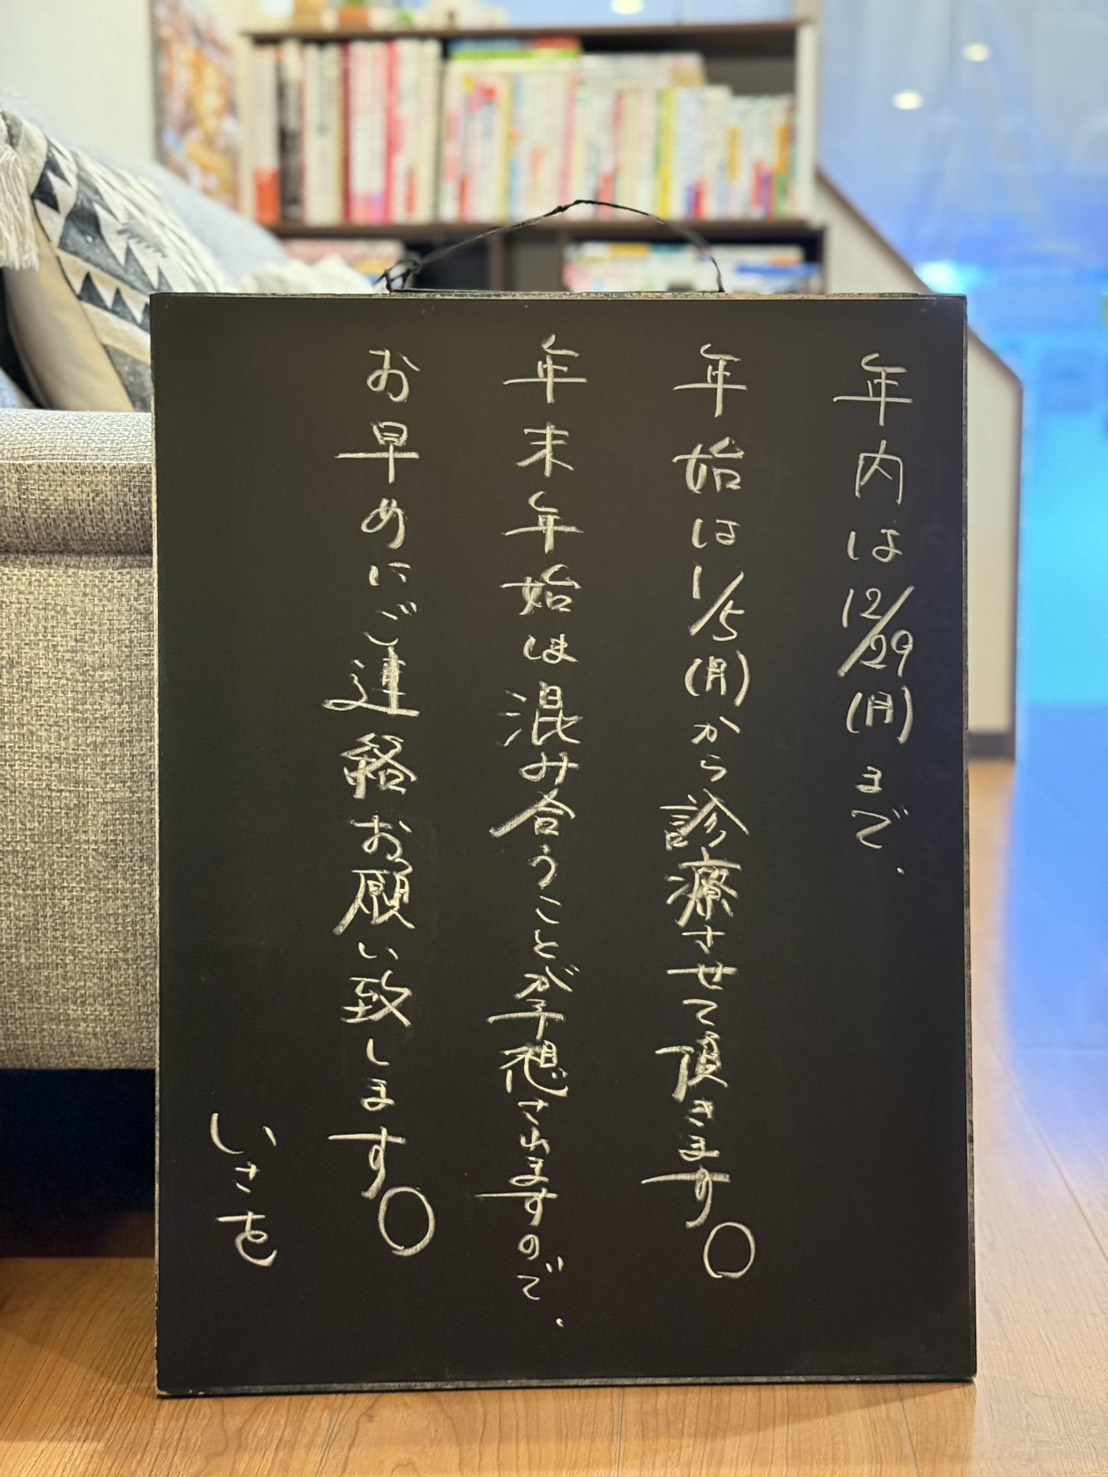 年内は12/29(月)まで、
年始は1/5(月)から診療させて頂きます。
年末年始は混み合うことが予想されますので、
お早めにご連絡お願い致します。
いさを